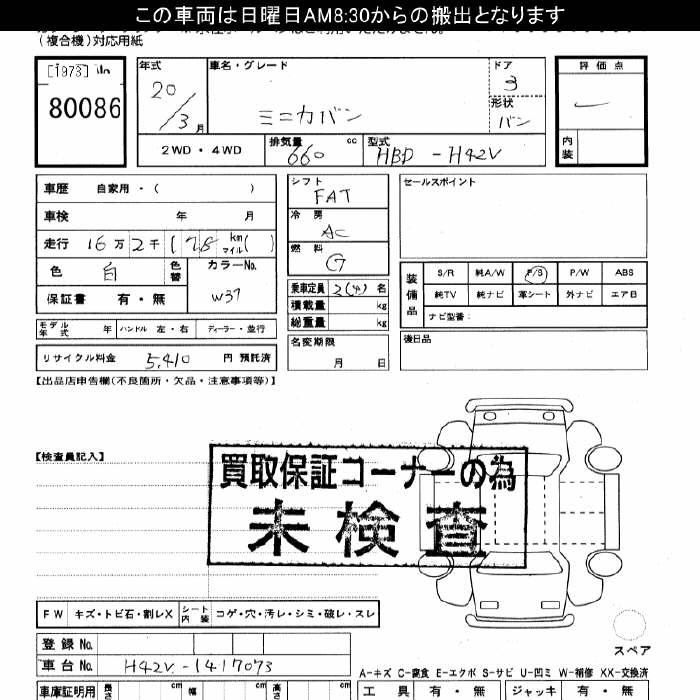 この車両は日曜日AM8:30からの搬出となります
(複合機)対応用紙
[1973]
80086
年式 20/3月
車名・グレード ミニカバン
ドア 3
形状 バン
評価点
内装
2WD・4WD
排気量 660 cc
型式 HBD-H42V
車歴 自家用・( )
車検 年 月
走行 16万2千178 km マイル( )
色 白 色替
カラーNo. W37
保証書 有・無
モデル年式 年 ハンドル 左・右 ディーラー・並行
リサイクル料金 5,410 円 預託済
シフト FAT
冷房 AC
燃料 G
乗車定員 2(4) 名
積載量 kg
総重量 kg
名変期限 月 日
セールスポイント
装備品
S/R 純A/W P/S P/W ABS
純TV 純ナビ 革シート 外ナビ エアB
ナビ型番:
後日品
【出品店申告欄(不良箇所・欠品・注意事項等)】
【検査員記入】
買取保証コーナーの為
未検査
FW キズ・トビ石・割レX シート内装 コゲ・穴・汚レ・シミ・破レ・スレ
登録No.
車台No. H42V-1417073
スペア
A-キズ C-腐食 E-エクボ S-サビ U-凹ミ W-補修 XX-交換済
車庫証明用 長さ cm 幅 cm 高さ cm
工具 有・無 ジャッキ 有・無